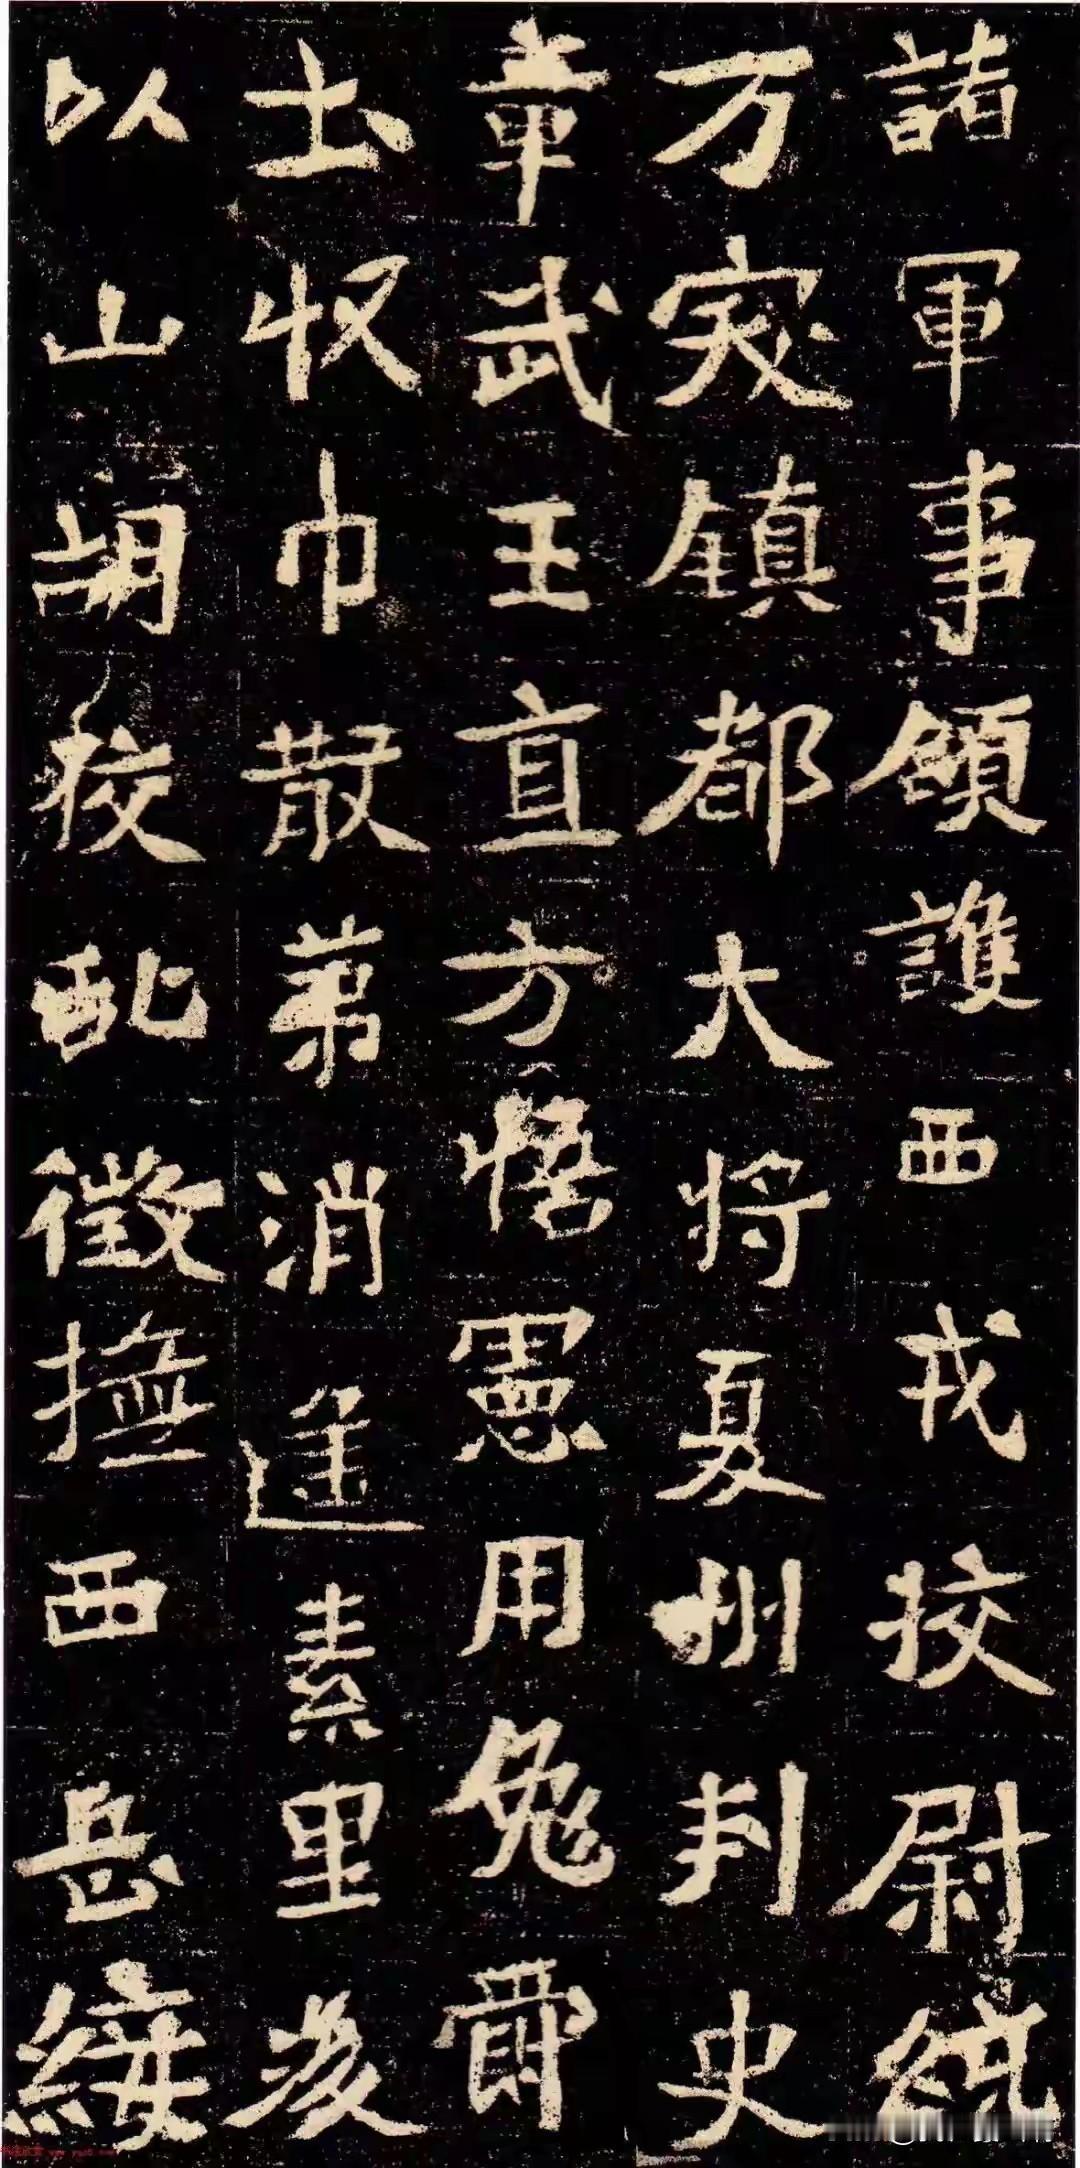 諸軍事領護西戎挍尉統
万突鎮都大将夏州刺史
章武王直方悟憲用免爵
土收巾散第消遥素里後
以山胡狡乱徵撫西岳綏